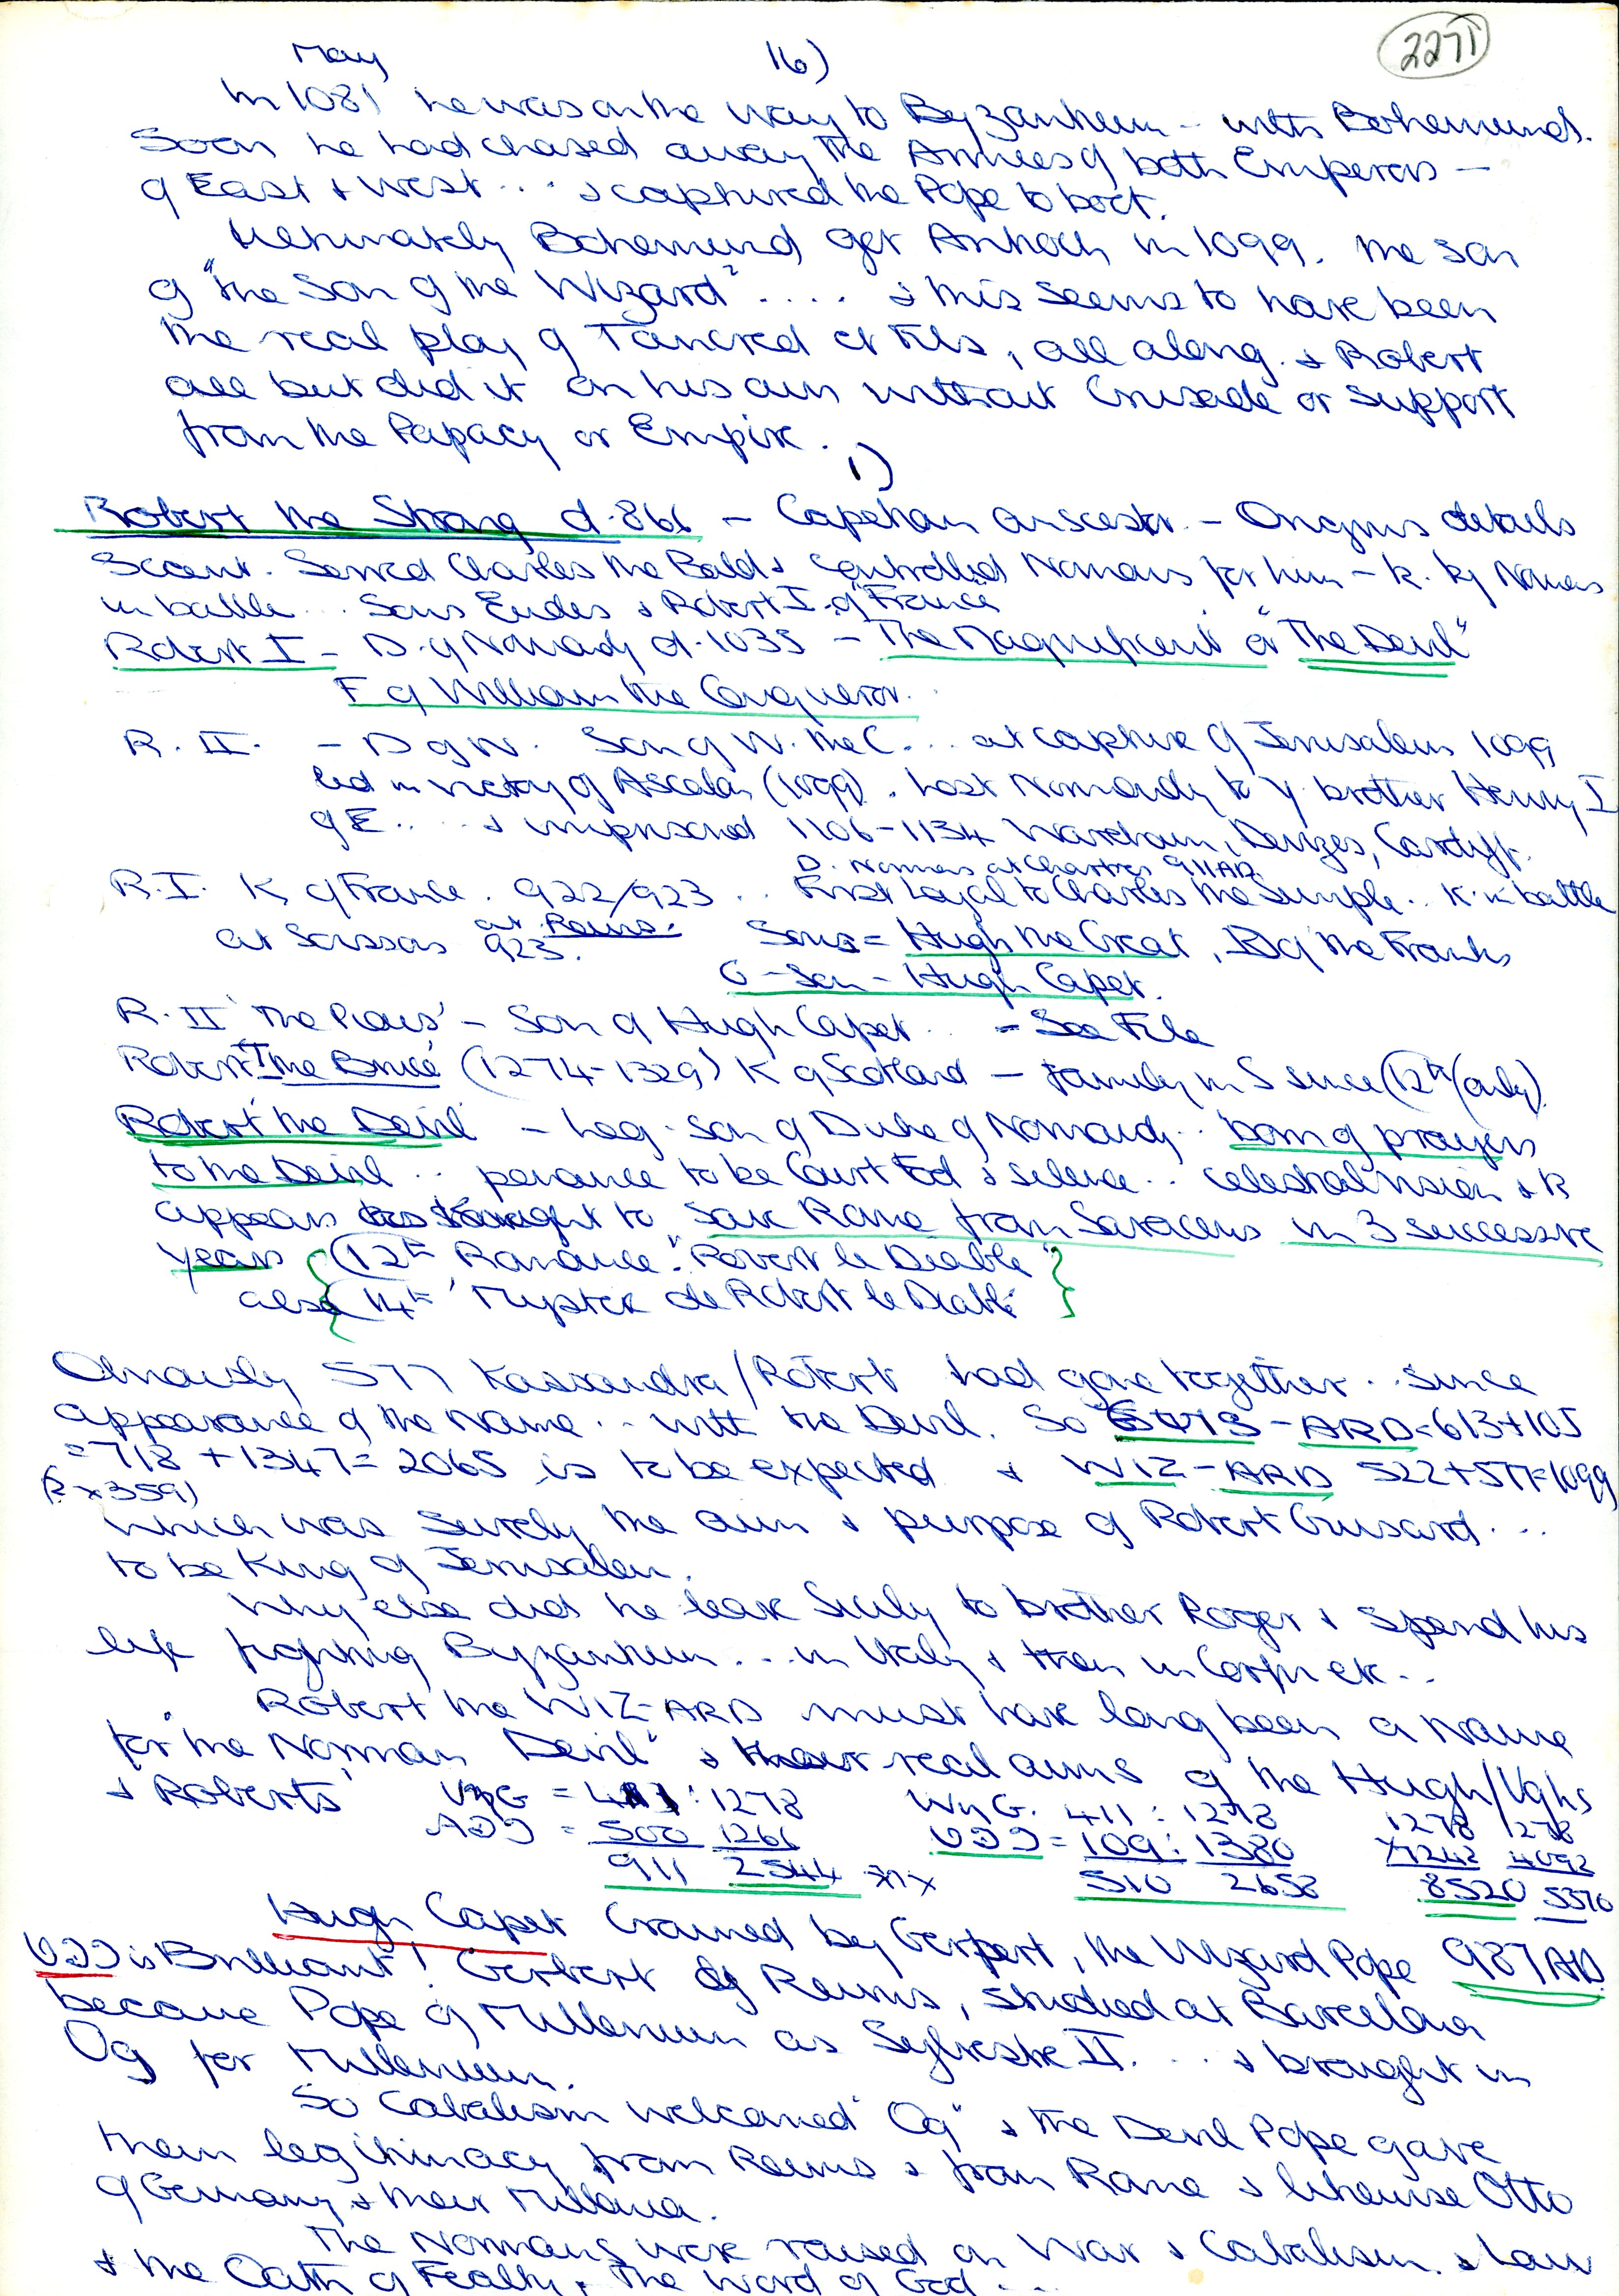 May
16)
2271
In 1081 he was on the way to Byzantium – with Bohemund.
Soon he had chased away the Armies of both Emperors –
of East & West ... & captured the Pope to boot.
Ultimately Bohemund got Antioch in 1099. The son
of "the Son of the Wizard" .... & this seems to have been
the real play of Tancred et Fils, all along. & Robert
all but did it on his own without Crusade or support
from the Papacy or Empire.
1)
Robert the Strong d. 866 – Capetian – Origins details
Scant. Served Charles the Bald & controlled Normans for him – k. by Normans
in battle ... Sons Eudes & Robert I of "France"
Robert I – D. of Normandy d. 1035 – "The Magnificent" or "The Devil"
F of William the Conqueror.
R. II. – D of N. Son of W. the C... at capture of Jerusalem 1099
led in victory of Ascalon (1099). Lost Normandy to y. brother Henry I
of E. ... & imprisoned 1106–1134 Wareham, Devizes, Cardiff.
D. Normans at Chartres 911AD
R.I. K of France. 922/923 .. First Loyal to Charles the Simple.. K. in battle
at Soissons 923. at Reims. Sons = Hugh the Great, D of the Franks
G–Son – Hugh Capet.
R. II 'The Pious' – Son of Hugh Capet .. – See File
Robert I The Bruce (1274–1329) K of Scotland – family in S since (12th/early)
Robert the Devil – Leg. son of Duke of Normandy .. born of prayers
to the Devil .. penance to be Court Fool & silence .. celestial vision & R
appears to save Rome from Saracens in 3 successive
years {(12th Romance. "Robert le Diable"}
also {14th 'Mystere de Robert le Diable'}
Obviously 577 Kassandra/Robert had gone together .. since
appearance of the Name ... with the Devil. So – ARD = 613+105
= 718 + 1347 = 2065 is to be expected & WIZ–ARD 522+577=1099
(2x359)
which was surely the aim & purpose of Robert Guiscard ...
to be King of Jerusalem.
Why else did he leave Sicily to brother Roger & spend his
life fighting Byzantium ... in Italy & then in Corfu etc ...
"Robert the WIZ–ARD must have long been a name
for the Norman "Devil" & their real aims of the Hugh/Vghs
& Roberts
= 411 : 1278 WnG. 411 : 1278 1278 1278
= 500 1266 = 109 : 1380 7242 4092
911 2544 510 2658 8520 5370
Hugh Capet Crowned by Gerbert, the Wizard Pope 987 AD
is Brilliant! Gerbert of Reims, studied at Barcelona
became Pope of Millenium as Sylvestre II. ... & brought in
Og for Millenium.
So Cabalism welcomed "Og" & the Devil Pope gave
them legitimacy from Reims & from Rome & likewise Otto
of Germany & their Millenia.
The Normans were raised on War & Cabalism. & Law
& the Oath of Fealty. The Word of God ...